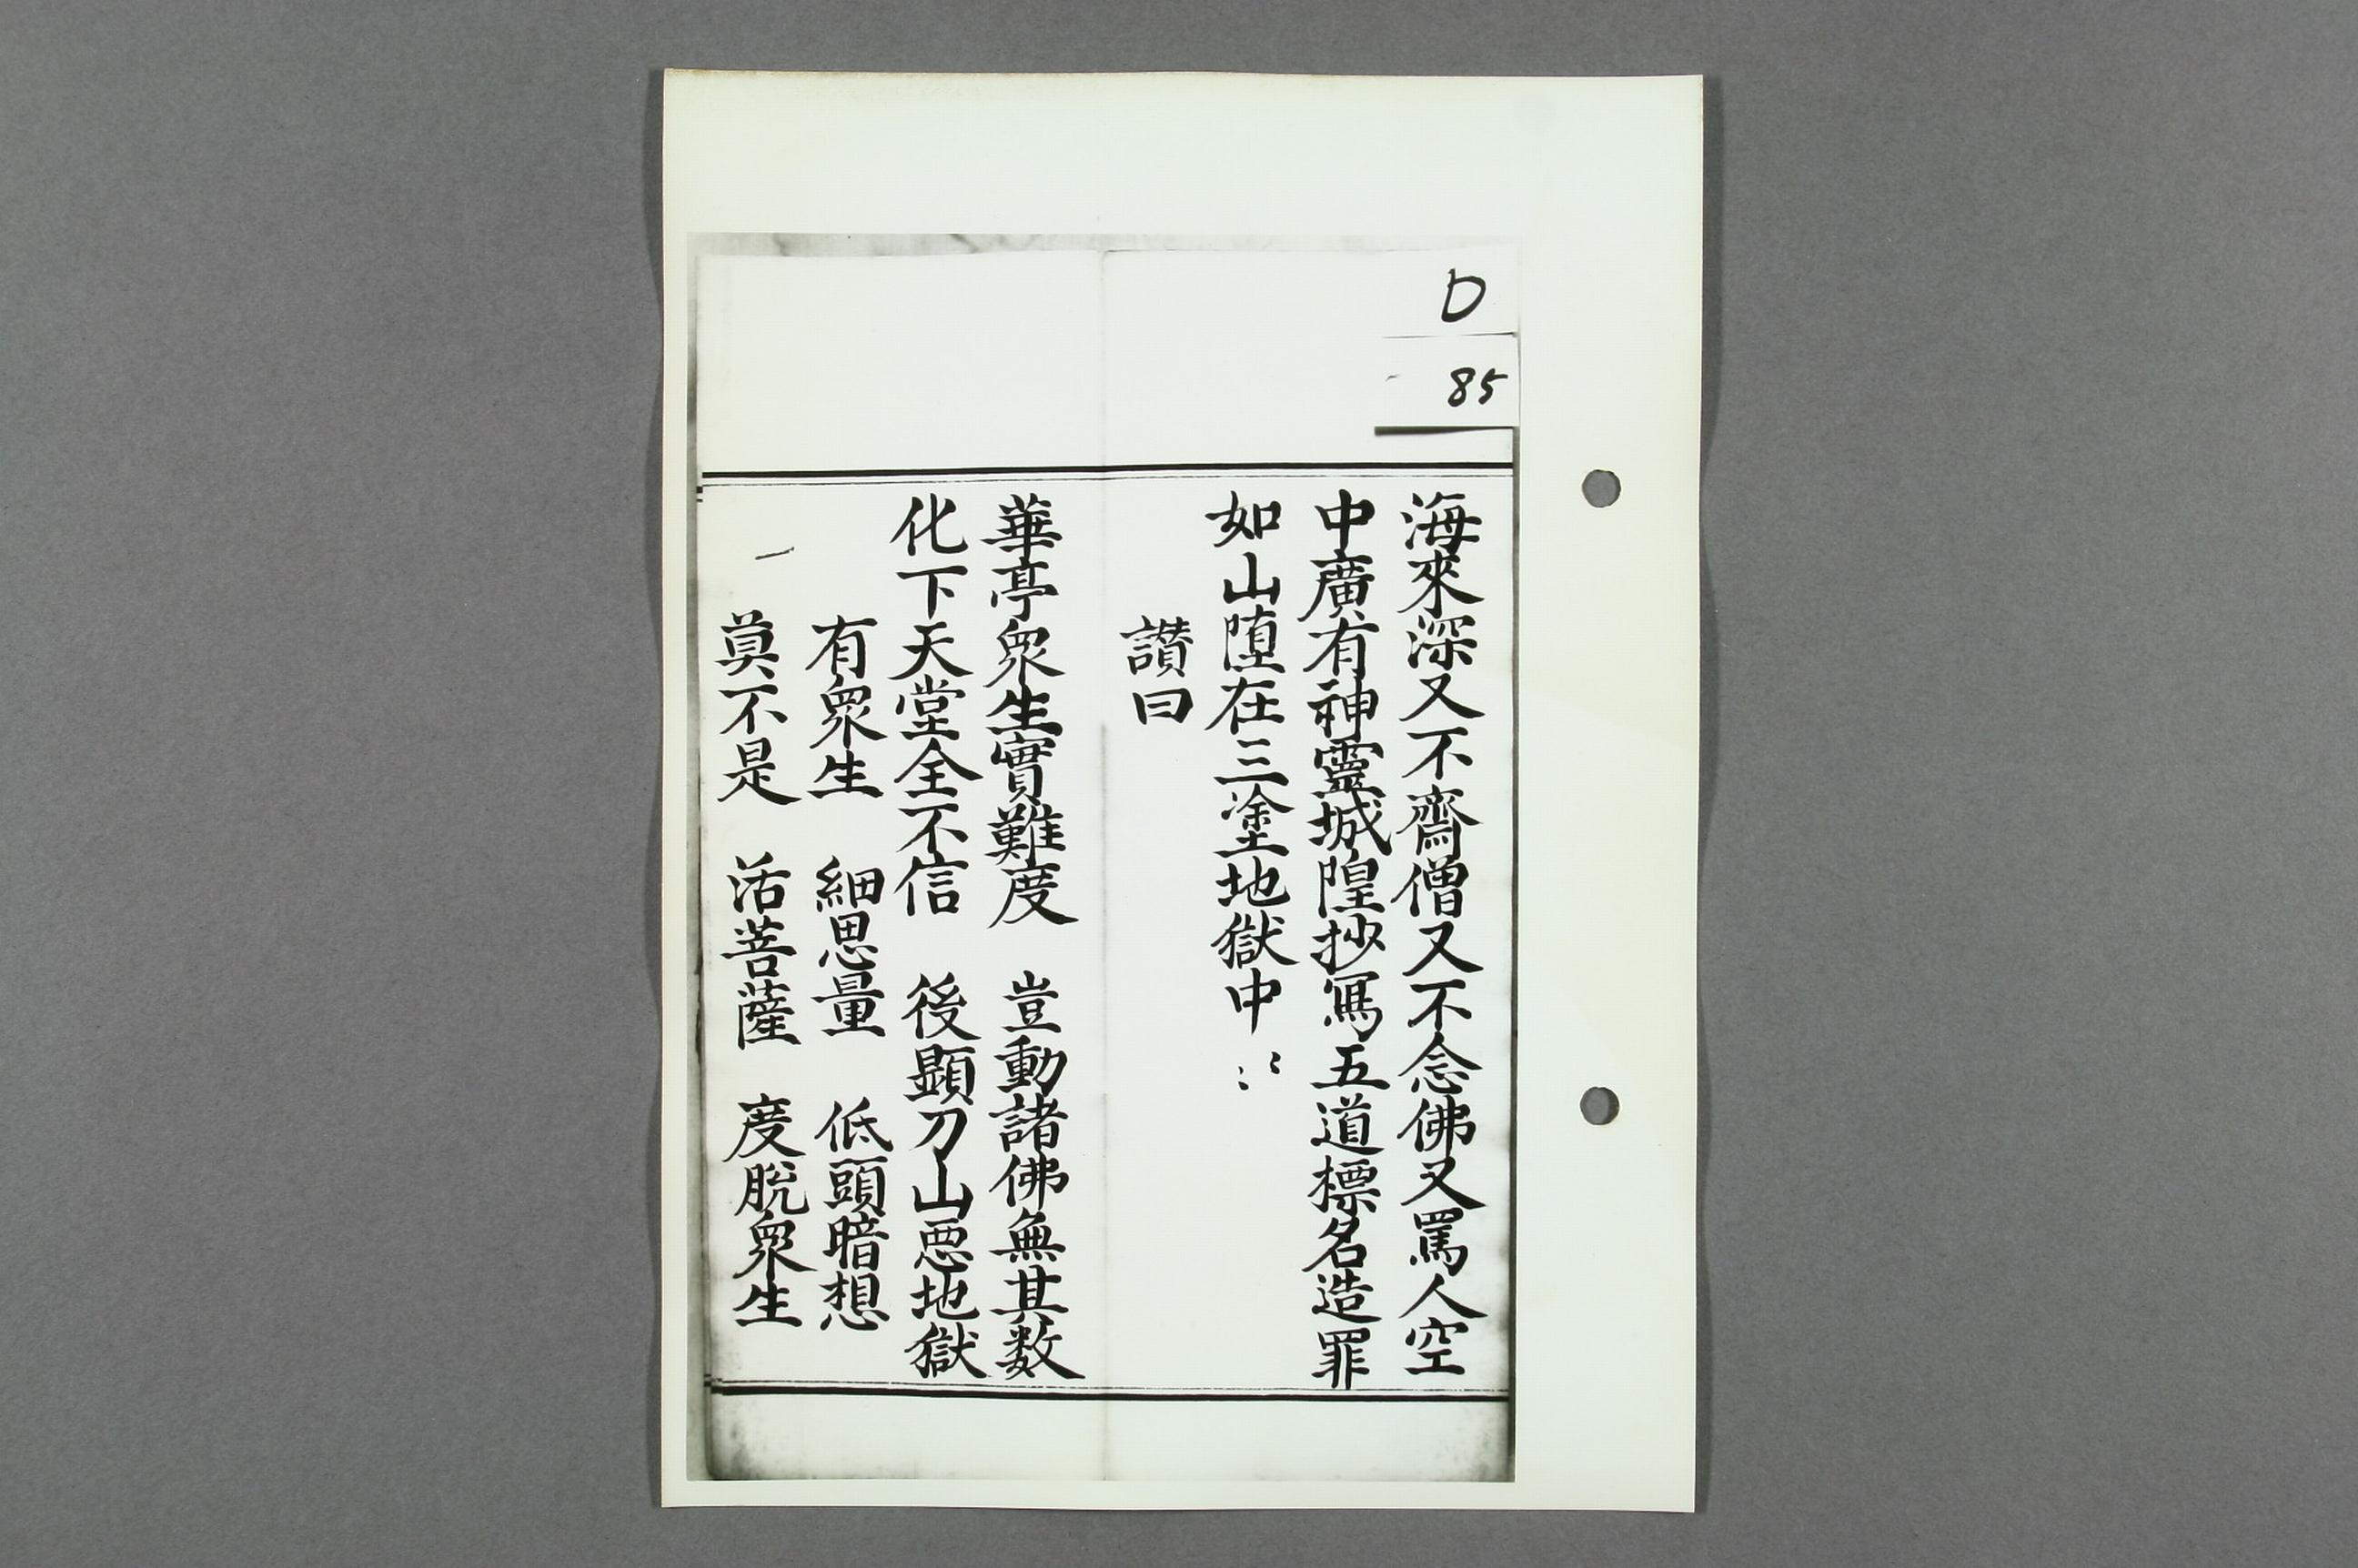 D
85
海來深又不齋僧又不念佛又罵人空
中廣有神靈城隍抄寫五道標名造罪
如山墮在三塗地獄中
讃曰
華亭眾生實難度　豈動諸佛無其数
化下天堂全不信　後顯刀山悪地獄
有眾生　細思量　低頭暗想
莫不是　活菩薩　度脫眾生